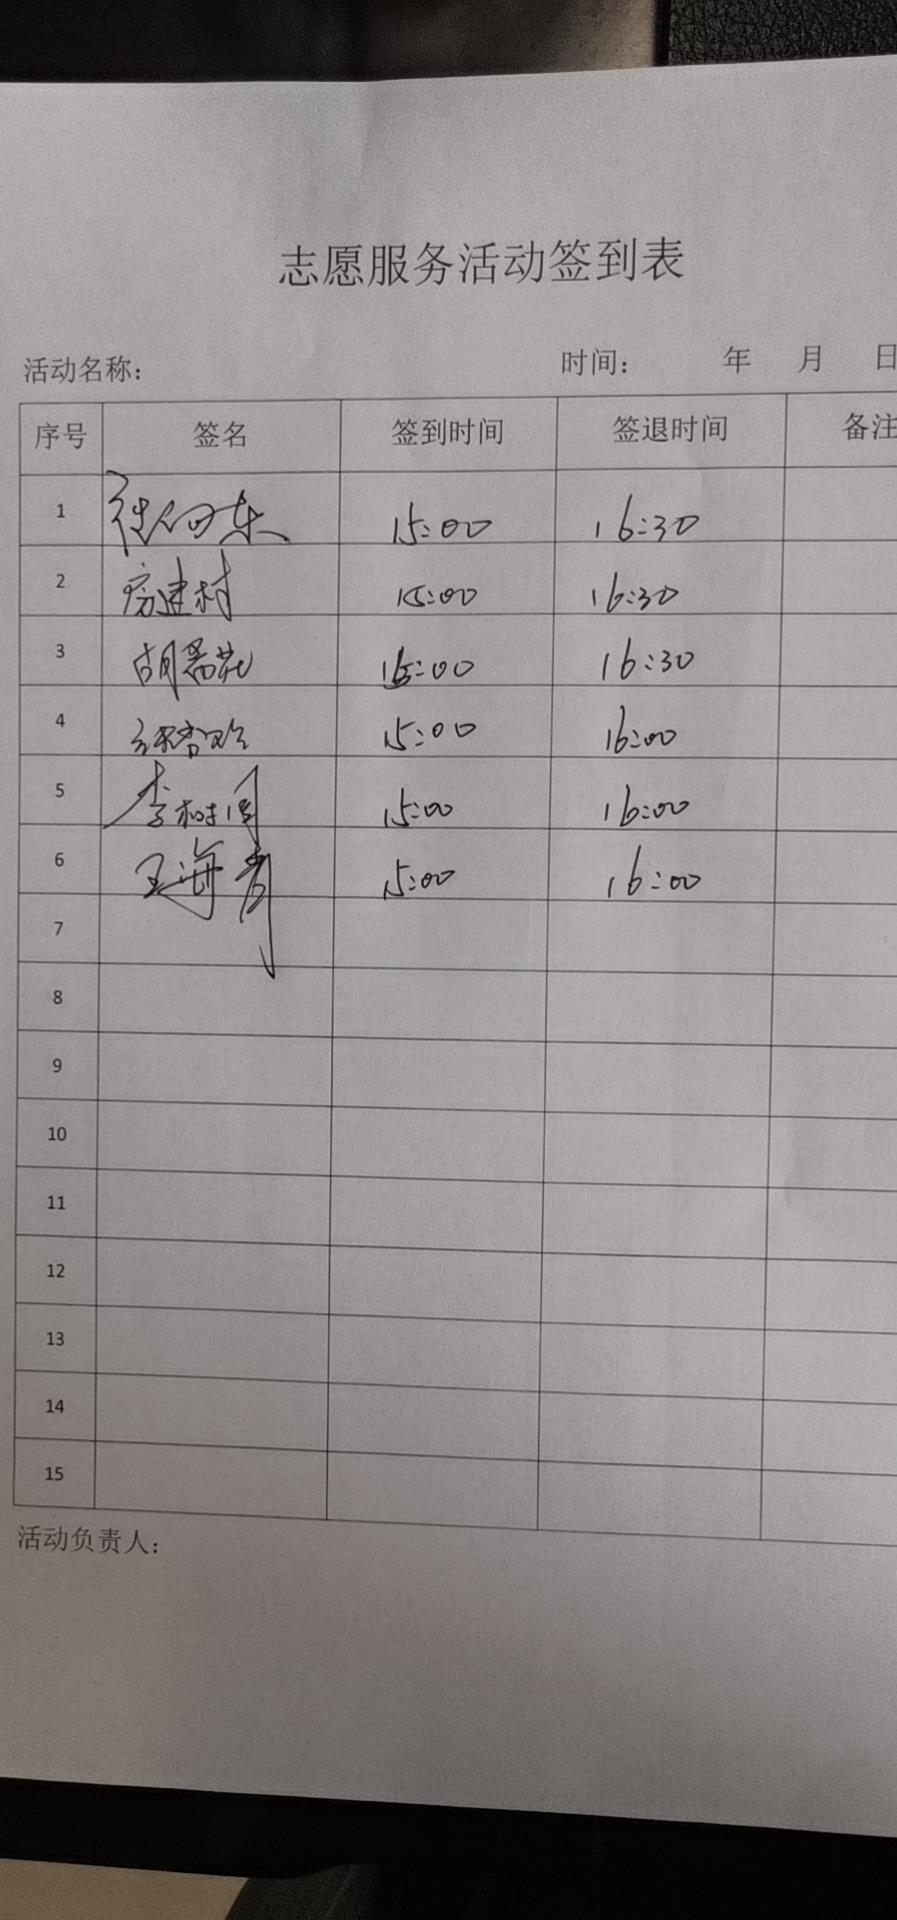 志愿服务活动签到表
活动名称： 时间： 年 月 日
序号 签名 签到时间 签退时间 备注
1 15:00 16:30
2 15:00 16:30
3 胡 15:00 16:30
4 15:00 16:00
5 李树 15:00 16:00
6 王海青 15:00 16:00
7
8
9
10
11
12
13
14
15
活动负责人：